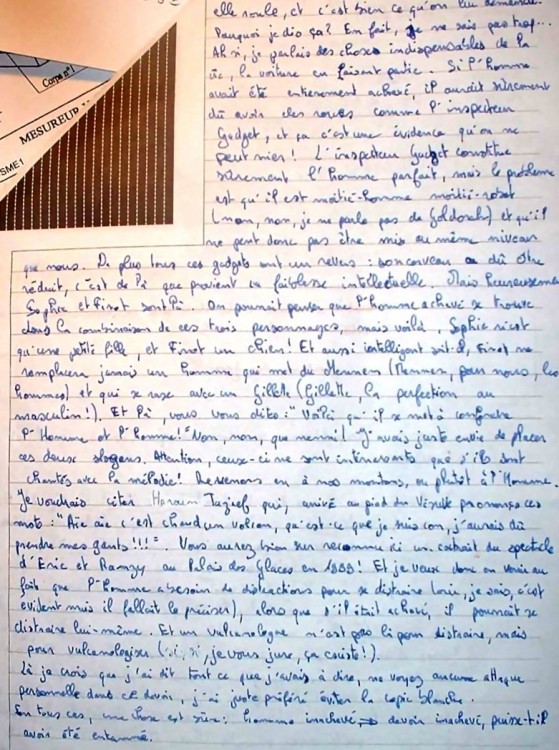 Corps n°1
MESUREUP
SME 1
elle roule, et c'est bien ce qu'on lui demande.
Pourquoi je dis ça? En fait, je ne sais pas trop...
Ah si, je parlais des choses indispensables de la
vie, la voiture en faisant partie. Si l'Homme
avait été entièrement achevé, il aurait sûrement
dû avoir des roues comme l'inspecteur
Gadget, et ça c'est une évidence qu'on ne
peut nier! L'inspecteur Gadget constitue
sûrement l'homme parfait, mais le problème
est qu'il est moitié-homme moitié-robot
(non, non, je ne parle pas de Goldorak) et qu'il
ne peut donc pas être mis au même niveau
que nous. De plus tous ces gadgets ont un revers: son cerveau a dû être
réduit, c'est de là que provient sa faiblesse intellectuelle. Mais heureusement
Sophie et Finot sont là. On pourrait penser que l'homme achevé se trouve
dans la combinaison de ces trois personnages, mais voilà, Sophie n'est
qu'une petite fille, et Finot un chien! Et aussi intelligent soit-il, Finot ne
remplacera jamais un homme qui met du Mennen (Mennen, pour nous, les
hommes) et qui se rase avec un Gillette (Gillette, la perfection au
masculin!). Et là, vous vous dites: "Voilà qu'il se met à confondre
l'Homme et l'homme!" Non, non, que nenni! J'avais juste envie de placer
ces deux slogans. Attention, ceux-ci ne sont intéressants que s'ils sont
chantés avec la mélodie! Revenons en à nos moutons, ou plutôt à l'Homme.
Je voudrais citer Haroun Tazieff qui, arrivé au pied du Vésuve prononça ces
mots: "Aïe aïe c'est chaud un volcan, qu'est-ce que je suis con, j'aurais dû
prendre mes gants!!!". Vous aurez bien sûr reconnu ici un extrait du spectacle
d'Eric et Ramzy au Palais des Glaces en 1999! Et je veux donc en venir au
fait que l'homme a besoin de distractions pour se distraire (oui, je sais, c'est
évident mais il fallait le préciser), alors que s'il était achevé, il pourrait se
distraire lui-même. Et un vulcanologue n'est pas là pour distraire, mais
pour vulcanologiser (si, si, je vous jure, ça existe!).
Là je crois que j'ai dit tout ce que j'avais à dire, ne voyez aucune attaque
personnelle dans ce devoir, j'ai juste préféré éviter la copie blanche.
En tous cas, une chose est sûre: homme inachevé → devoir inachevé, puisse-t-il
avoir été entamé.